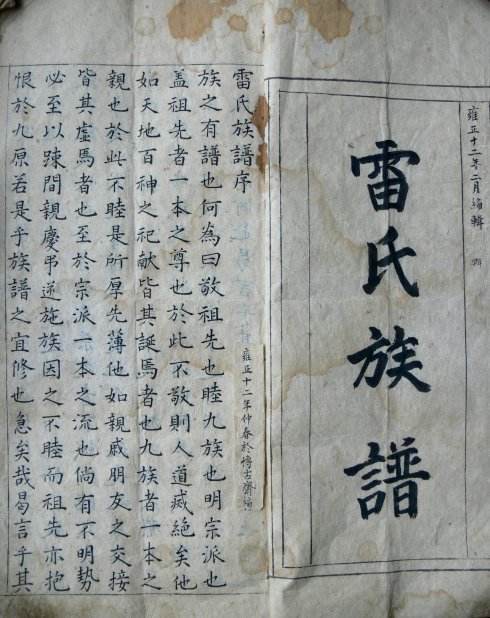 雍正十二年二月編輯
雷氏族譜
雍正十二年仲春於博古齋
雷氏族譜序
族之有譜也何為曰敬祖先也睦九族也明宗派也
盖祖先者一本之尊也於此不敬則人道滅絕矣他
如天地百神之祀献皆其誕焉者也九族者一本之
親也於此不睦是所厚先薄他如親戚朋友之交接
皆其虛焉者也至於宗派一本之流也倘有不明勢
必至以踈間親慶弔逆施族因之不睦而祖先亦抱
恨於九原若是乎族譜之宜修也急矣哉曷言乎其